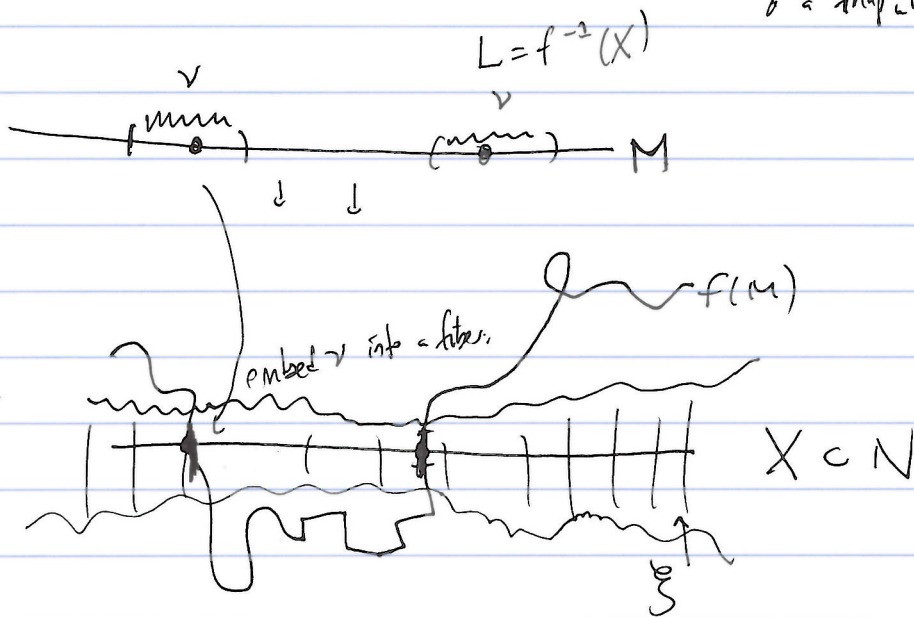 of a
L = f⁻¹(X)
ν
ν
M
f(M)
embed ν into a fiber.
X ⊂ N
ξ